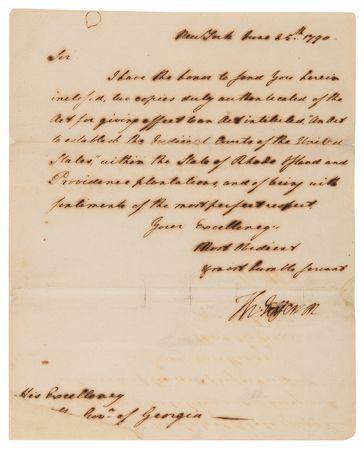 New York June 25th 1790.
Sir
I have the honor to send you herein
inclosed, two copies duly authenticated of the
Act for giving effect to an Act intituled, "An Act
to establish the Judicial Courts of the United
States," within the State of Rhode Island and
Providence plantations, and of being with
sentiments of the most perfect respect
Your Excellency's
Most Obedient
& most humble servant
Th: Jefferson
His Excellency
the Govr. of Georgia